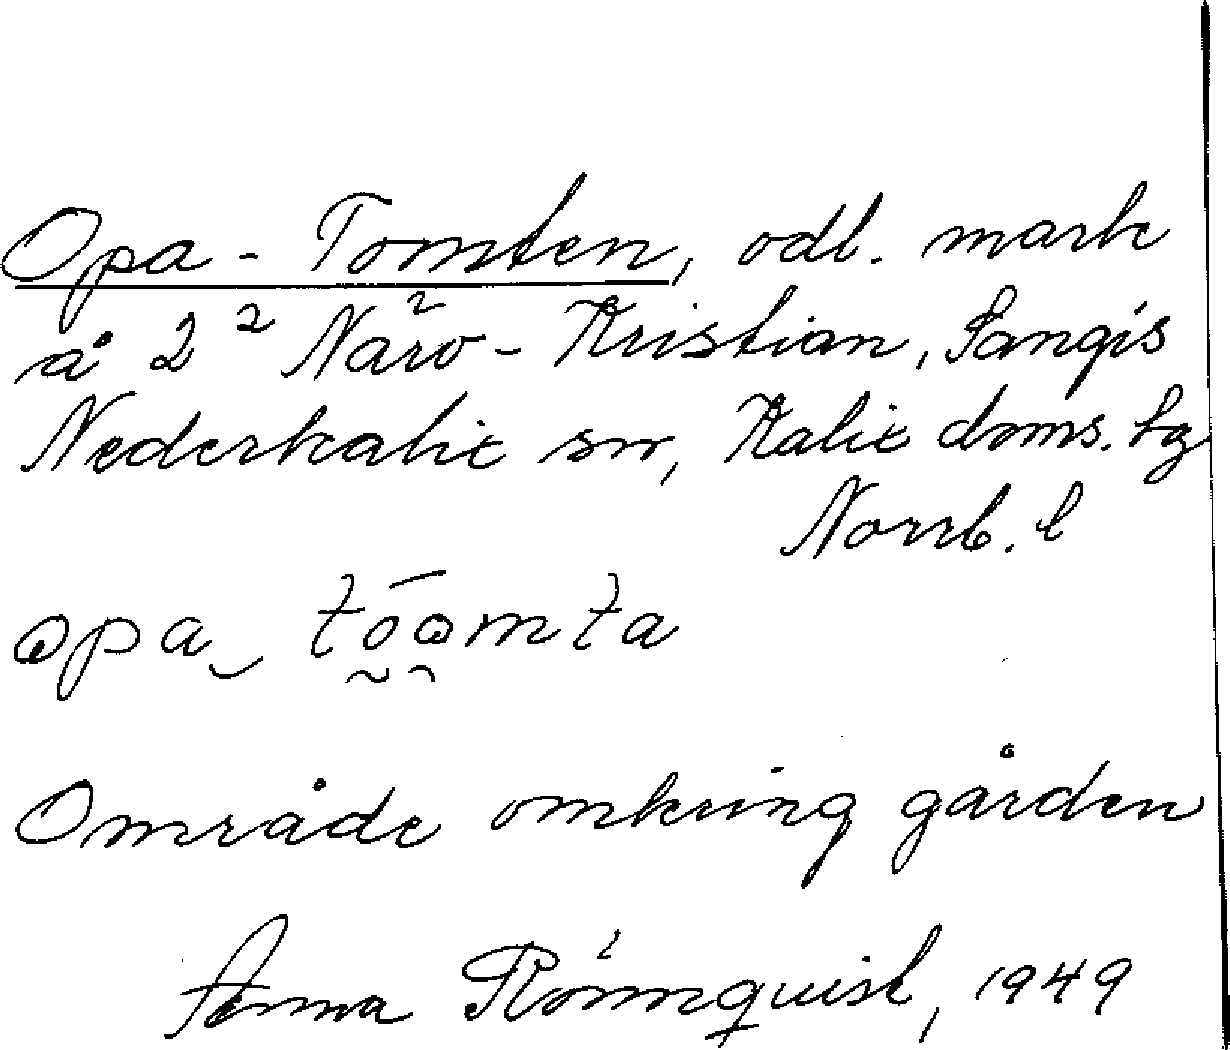 Opa-Tomten, odl. mark
å 2² Närv-Kristian, Sangis
Nederkalix sn, Kalix doms. lg
Norrb. l
opa tōomta
Område omkring gården
Anna Rönnquist, 1949